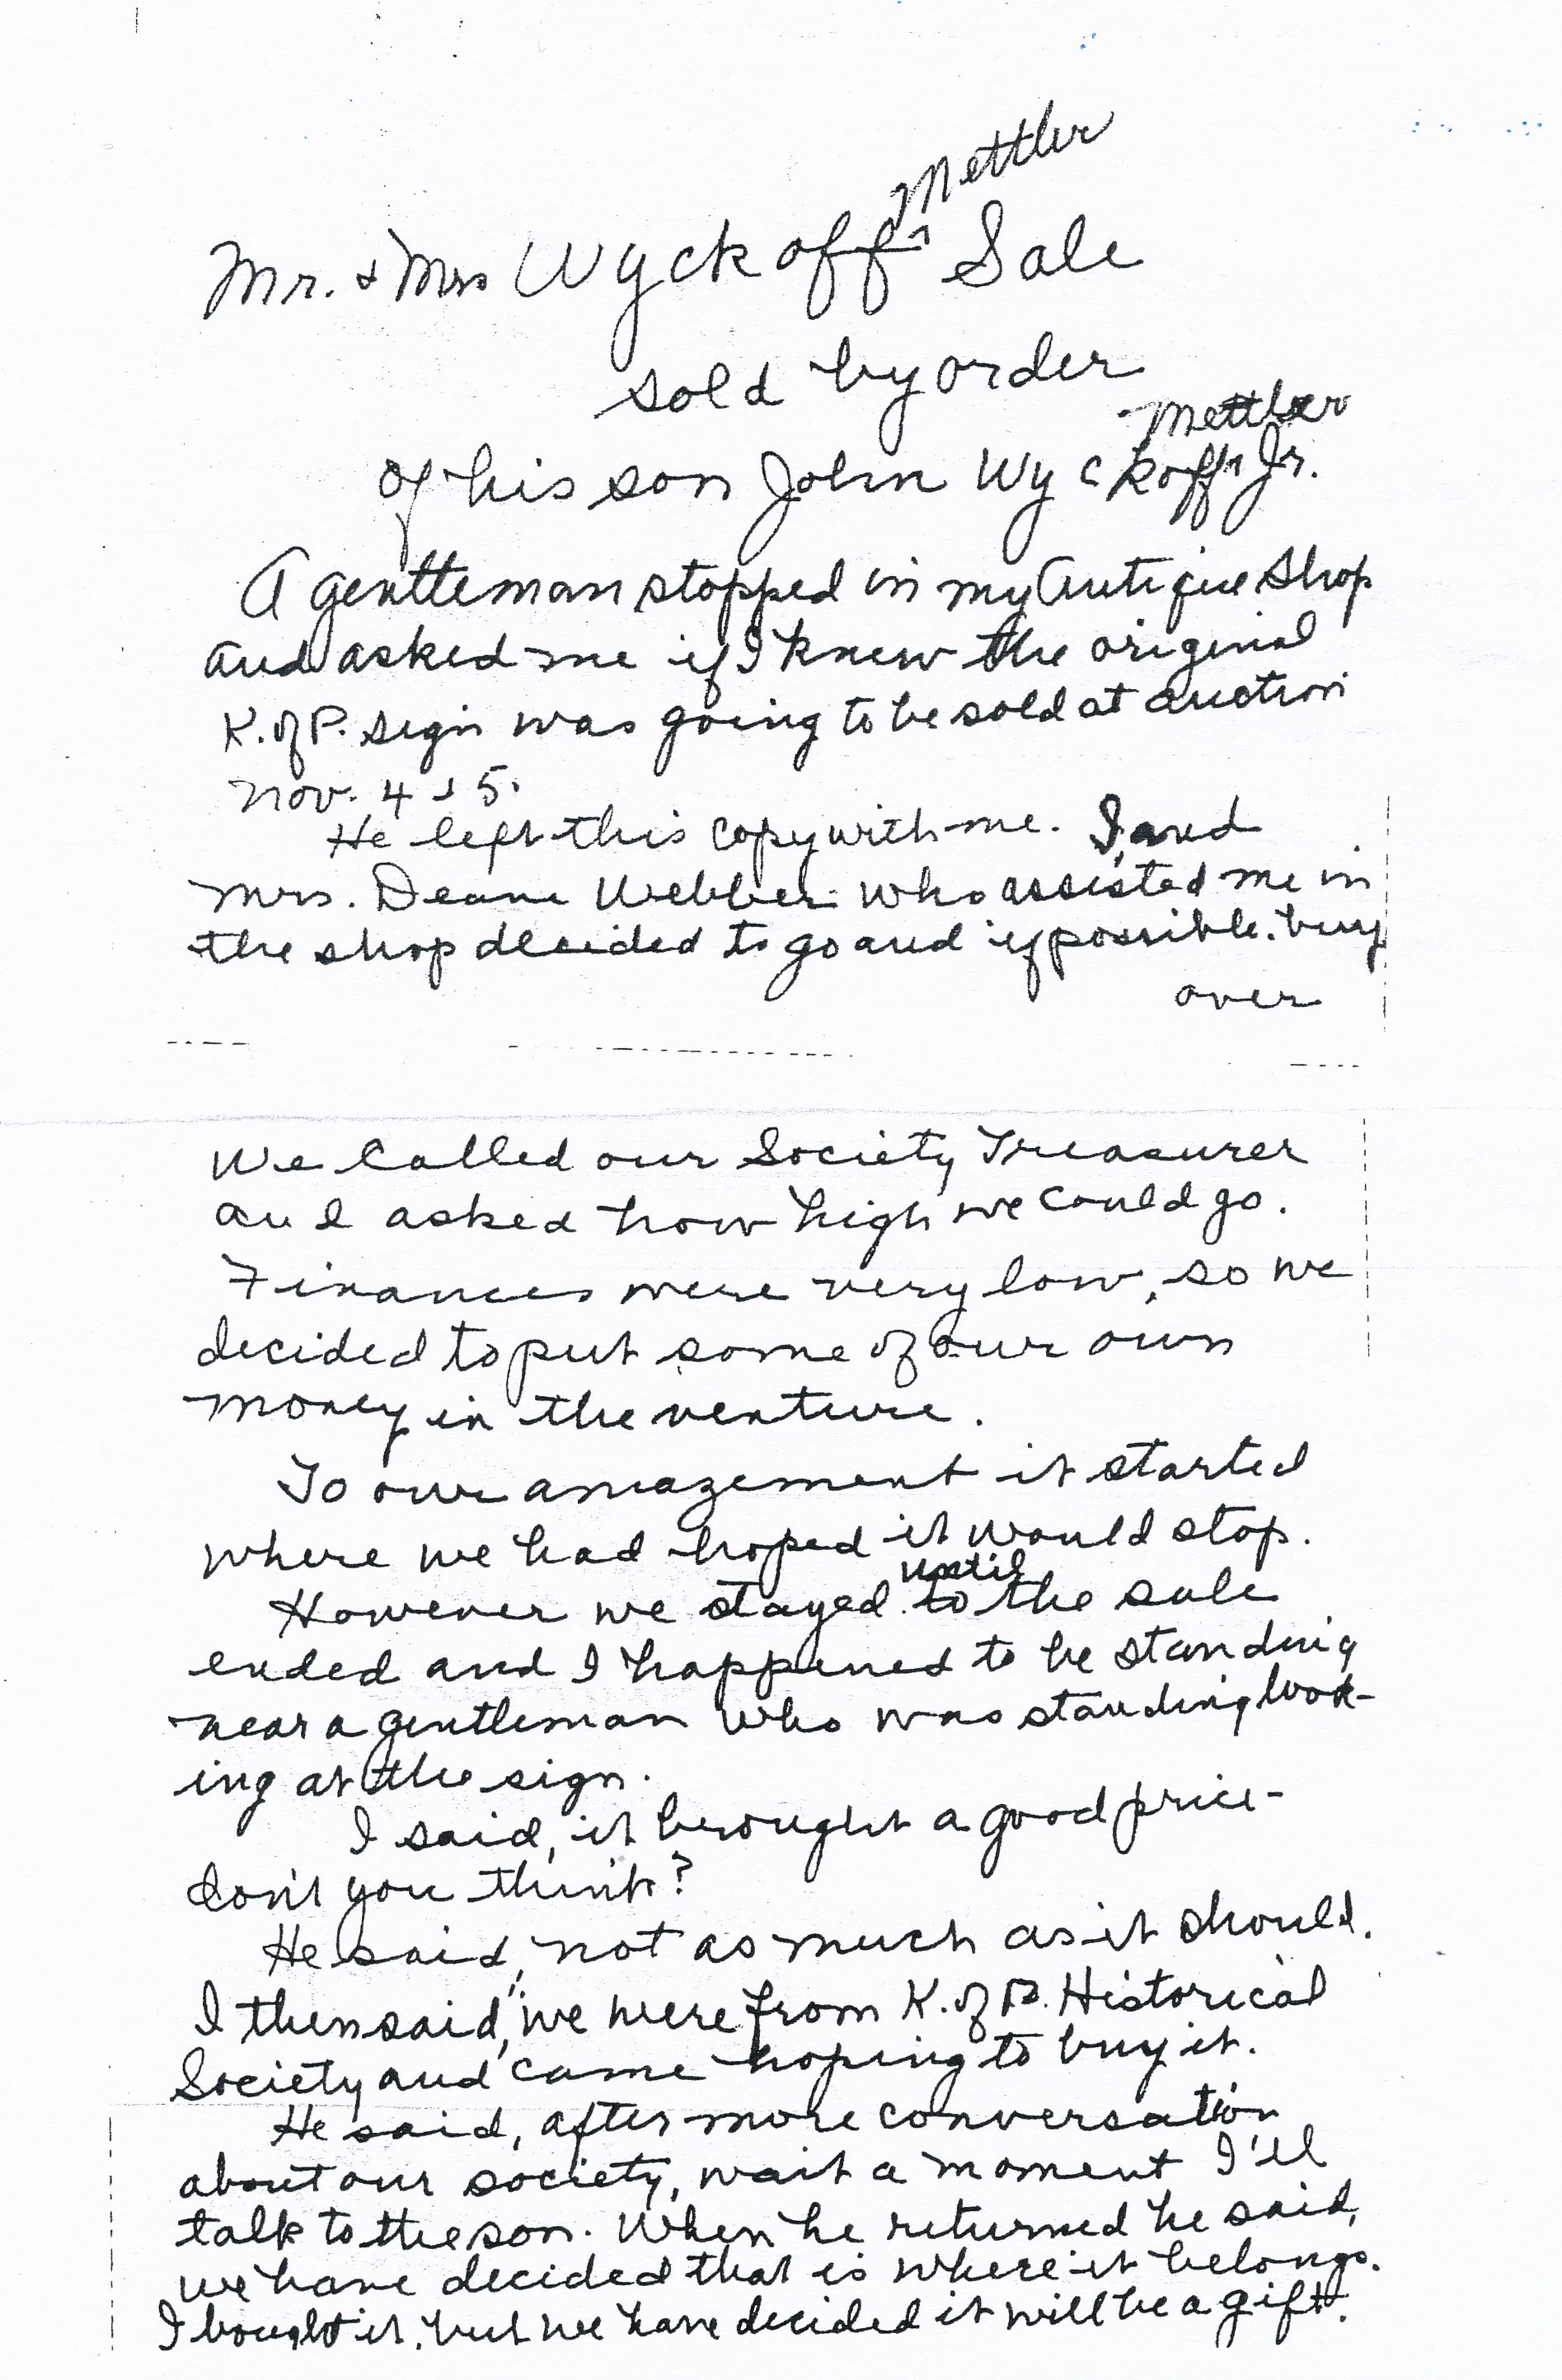 Mettler
Mr. & Mrs Wyckoff ^ Sale
sold by order
Mettler
of his son John Wyckoff ^ Jr.
A gentleman stopped in my Antique Shop
and asked me if I knew the original
K. of P. sign was going to be sold at auction
Nov. 4 & 5.
He left this copy with me. I, and
Mrs. Deane Webber who assisted me in
the shop decided to go and if possible. buy
over
We called our Society Treasurer
and asked how high we could go.
Finances were very low, so we
decided to put some of our own
money in the venture.
To our amazement it started
where we had hoped it would stop.
until
However we stayed to the sale
ended and I happened to be standing
near a gentleman who was standing look-
ing at the sign.
I said, it brought a good price-
don't you think?
He said, not as much as it should.
I then said, "we were from K. of P. Historical
Society and came hoping to buy it.
He said, after more conversation
about our society, wait a moment I'll
talk to the son. When he returned he said,
we have decided that is where it belongs.
I bought it, but we have decided it will be a gift.